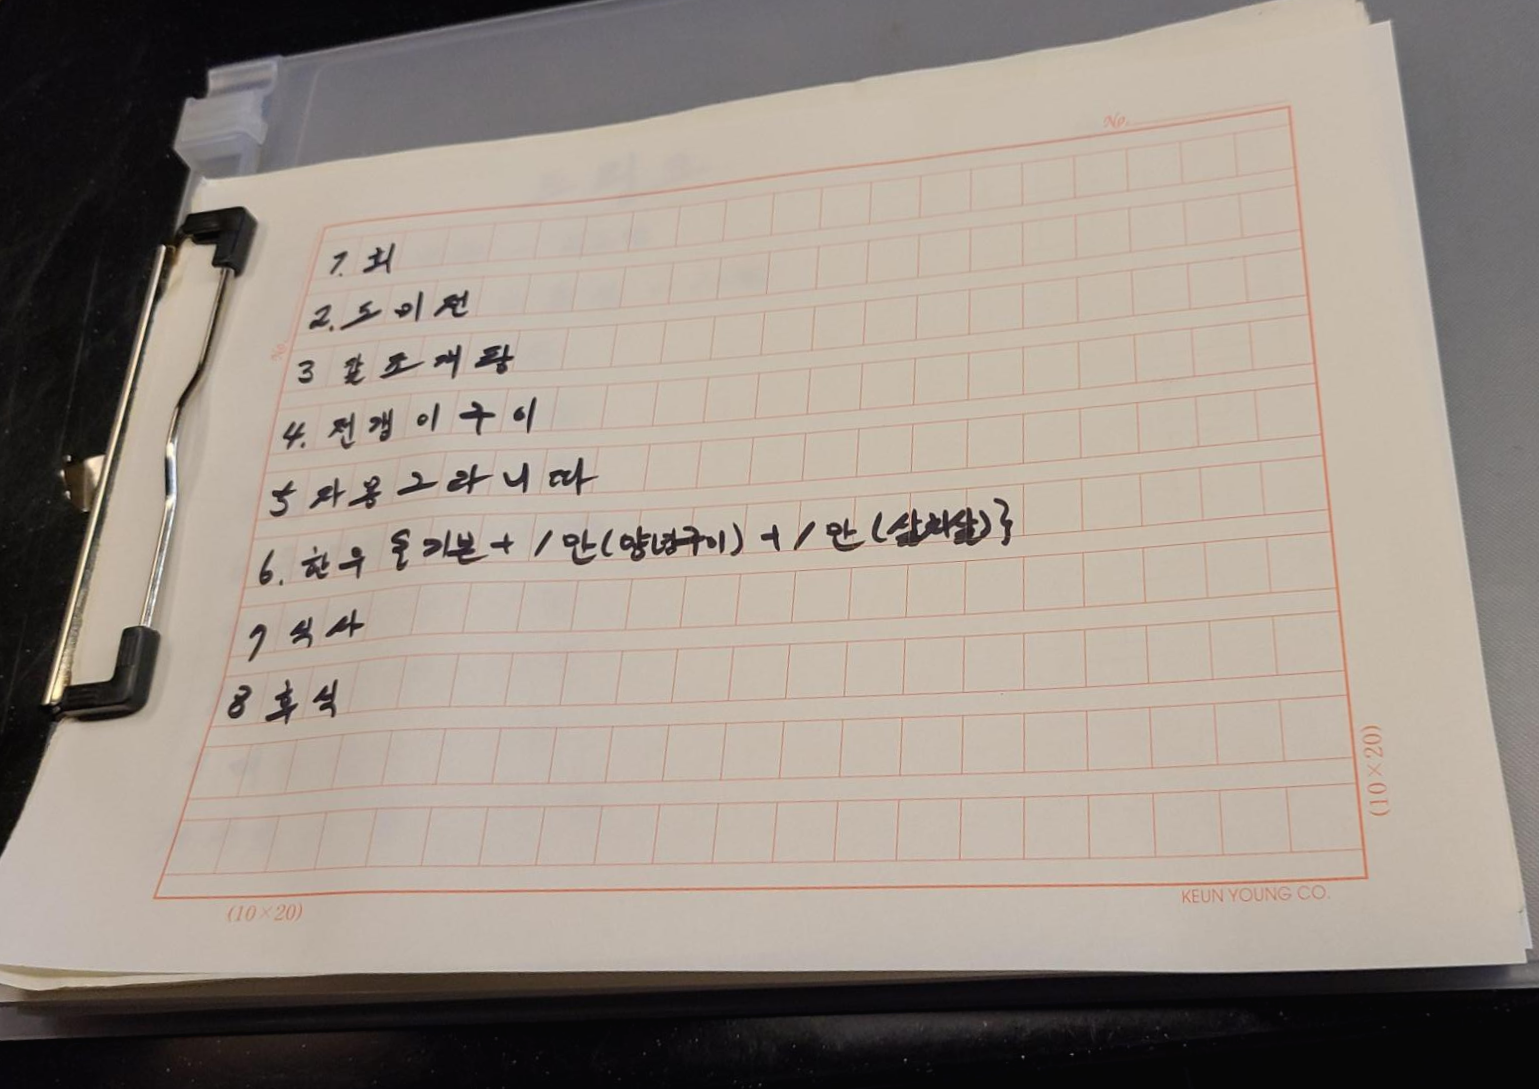 No.
1. 회
2. 도미전
3 갈조개탕
4. 전갱이구이
5 자몽그라니따
6. 한우 {기본 + 1만(양념구이) + 1만(살치살)}
7 식사
8 후식
(10×20)
(10×20)
KEUN YOUNG CO.